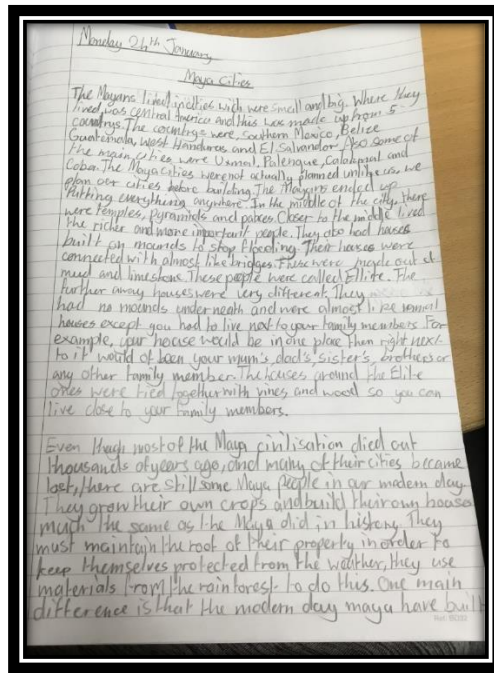 Monday 24th January
Maya Cities
The Mayans lived in cities wich were small and big. Where they
lived was central America and this was made up from 5
countrys. The countrys were, Southern Mexico, Belize
Guatemala, West Honduras and El Salvandor. Also some of
the main cities were Uxmal, Palenque, Calakmul and
Coba. The Maya cities were not actually planned unlike us, we
plan our cities before building. The Mayans ended up
Putting everything anywhere. In the middle of the city, there
were temples, pyramids and palaces. Closer to the middle lived
the richer and more important people. They also had houses
built on mounds to stop flooding. Their houses were
connected with almost like bridges. These were made out of
mud and limestone. These people were called Ellite. The
further away houses were very different. They
had no mounds underneath and were almost like normal
houses except you had to live next to your family members. For
example, your house would be in one place then right next
to it would of been your mum's, dad's, sister's, brothers or
any other family member. The houses around the Elite
ones were tied together with vines and wood so you can
live close to your family members.
Even though most of the Maya civilisation died out
thousands of years ago, and many of their cities became
lost, there are still some Maya people in our modern day.
They grow their own crops and build their own houses
much the same as the Maya did in history. They
must maintain the roof of their property in order to
keep themselves protected from the weather, they use
materials from the rainforest to do this. One main
difference is that the modern day maya have built